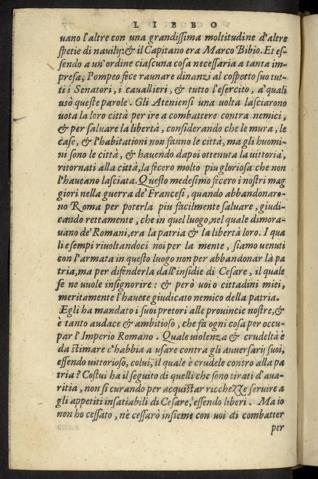 LIBRO
uano l'altre con una grandissima moltitudine d'altre
spetie di nauilij: & il Capitano era Marco Bibio. Et es-
sendo a un'ordine ciascuna cosa necessaria a tanta im-
presa, Pompeo fece raunare dinanzi al cospetto suo tut-
ti i Senatori, i cauallieri, & tutto l'esercito, a' quali
usò queste parole. Gli Ateniensi una uolta lasciarono
uota la loro città per ire a combattere contra nemici,
& per saluare la libertà, considerando che le mura, le
case, & l'habitationi non fanno le città, ma gli huomi-
ni sono le città, & hauendo dapoi ottenuta la uittoria,
ritornati alla città, la fecero molto piu gloriosa che non
l'haueano lasciata. Questo medesimo fecero i nostri mag
giori nella guerra de' Francesi, quando abbandonaro-
no Roma per poterla piu facilmente saluare, giudi-
cando rettamente, che in quel luogo, nel quale dimora-
uano de' Romani, era la patria & la libertà loro. I qua
li esempi riuoltandoci noi per la mente, siamo uenuti
con l'armata in questo luogo non per abbandonar la pa
tria, ma per difenderla dall'insidie di Cesare, il quale
se ne uuole insignorire: & però uoi o cittadini miei,
meritamente l'hauete giudicato nemico della patria.
Egli ha mandato i suoi pretori alle prouincie nostre, &
è tanto audace & ambitioso, che fa ogni cosa per occu-
par l'Imperio Romano. Quale uiolenza & crudeltà è
da stimare c'habbia a usare contra gli auuersarij suoi,
essendo uittorioso, colui, il quale è crudele contro alla pa
tria? Costui ha il seguito di quelli che sono tirati d'aua-
ritia, non si curando per acquistar ricchezze seruire a
gli appetiti insatiabili di Cesare, essendo liberi. Ma io
non ho cessato, nè cessarò insieme con uoi di combatter
per